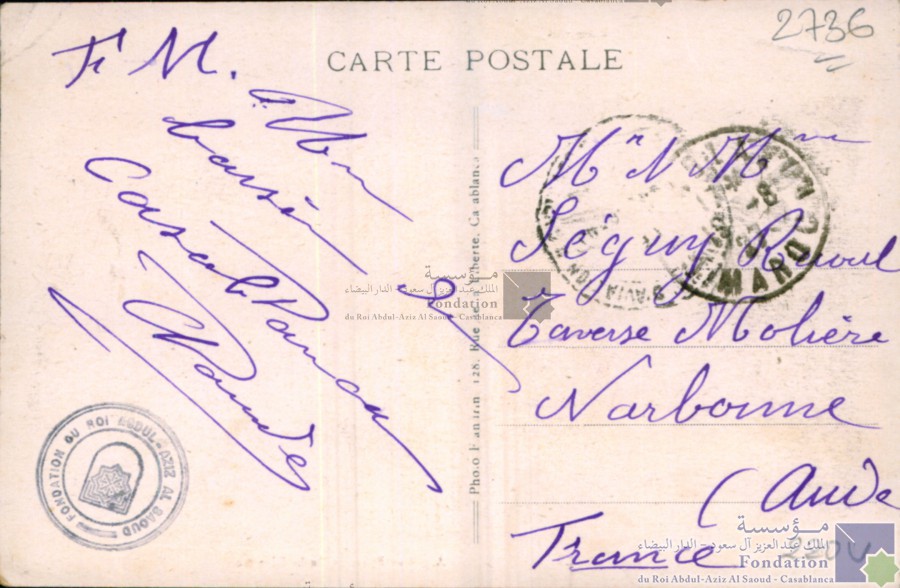 2736
CARTE POSTALE
F. M.
Un
baiser
Casablanca
Mr & Mme
Séguy Raoul
Traverse Molière
Narbonne
(Aude
France
Photo Flandrin 128, Rue de la Liberté, Casablanca
MAROC
مؤسسة
الملك عبد العزيز آل سعود - الدار البيضاء
Fondation
du Roi Abdul-Aziz Al Saoud - Casablanca
FONDATION DU ROI ABDUL-AZIZ AL SAOUD
مؤسسة
الملك عبد العزيز آل سعود - الدار البيضاء
Fondation
du Roi Abdul-Aziz Al Saoud - Casablanca